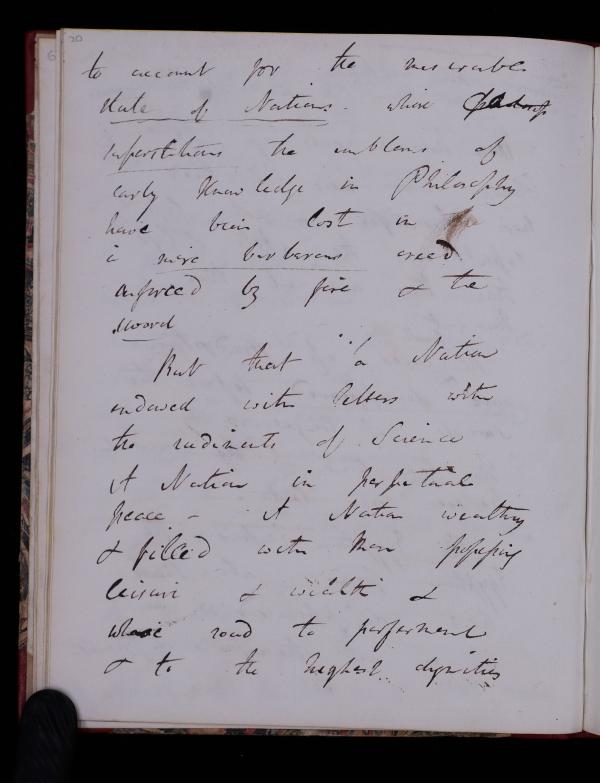 20
to account for the miserable
state of Nations. where
superstitions the emblems of
early Knowledge in Philosophy
have been lost in
a mere barbarous creed
enforced by fire & the
sword
But that a Nation
endowed with letters with
the rudiments of Science
A Nation in perpetual
peace - A Nation wealthy
& filled with Men possessing
leisure & wealth &
whose road to preferment
& to the highest dignities